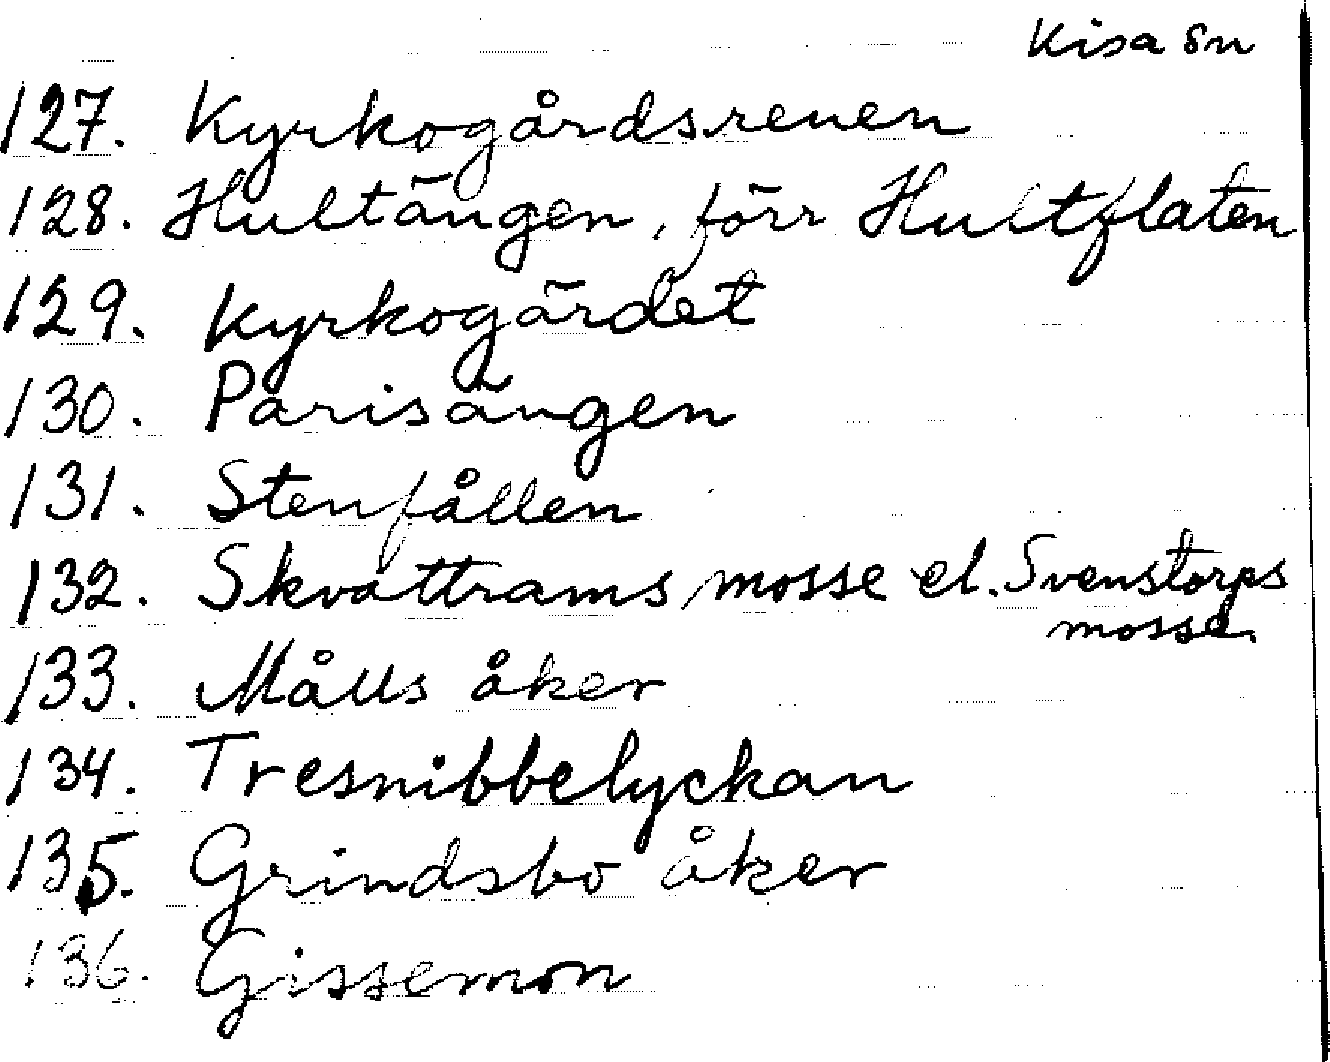 Kisa sn
127. Kyrkogårdsrenen
128. Hultängen, förr Hultflaten
129. Kyrkogärdet
130. Parisängen
131. Stenfållen
132. Skvattrams mosse el. Svenstorps
mosse.
133. Målls åker
134. Tresnibbelyckan
135. Grindsbo åker
136. Gissemon